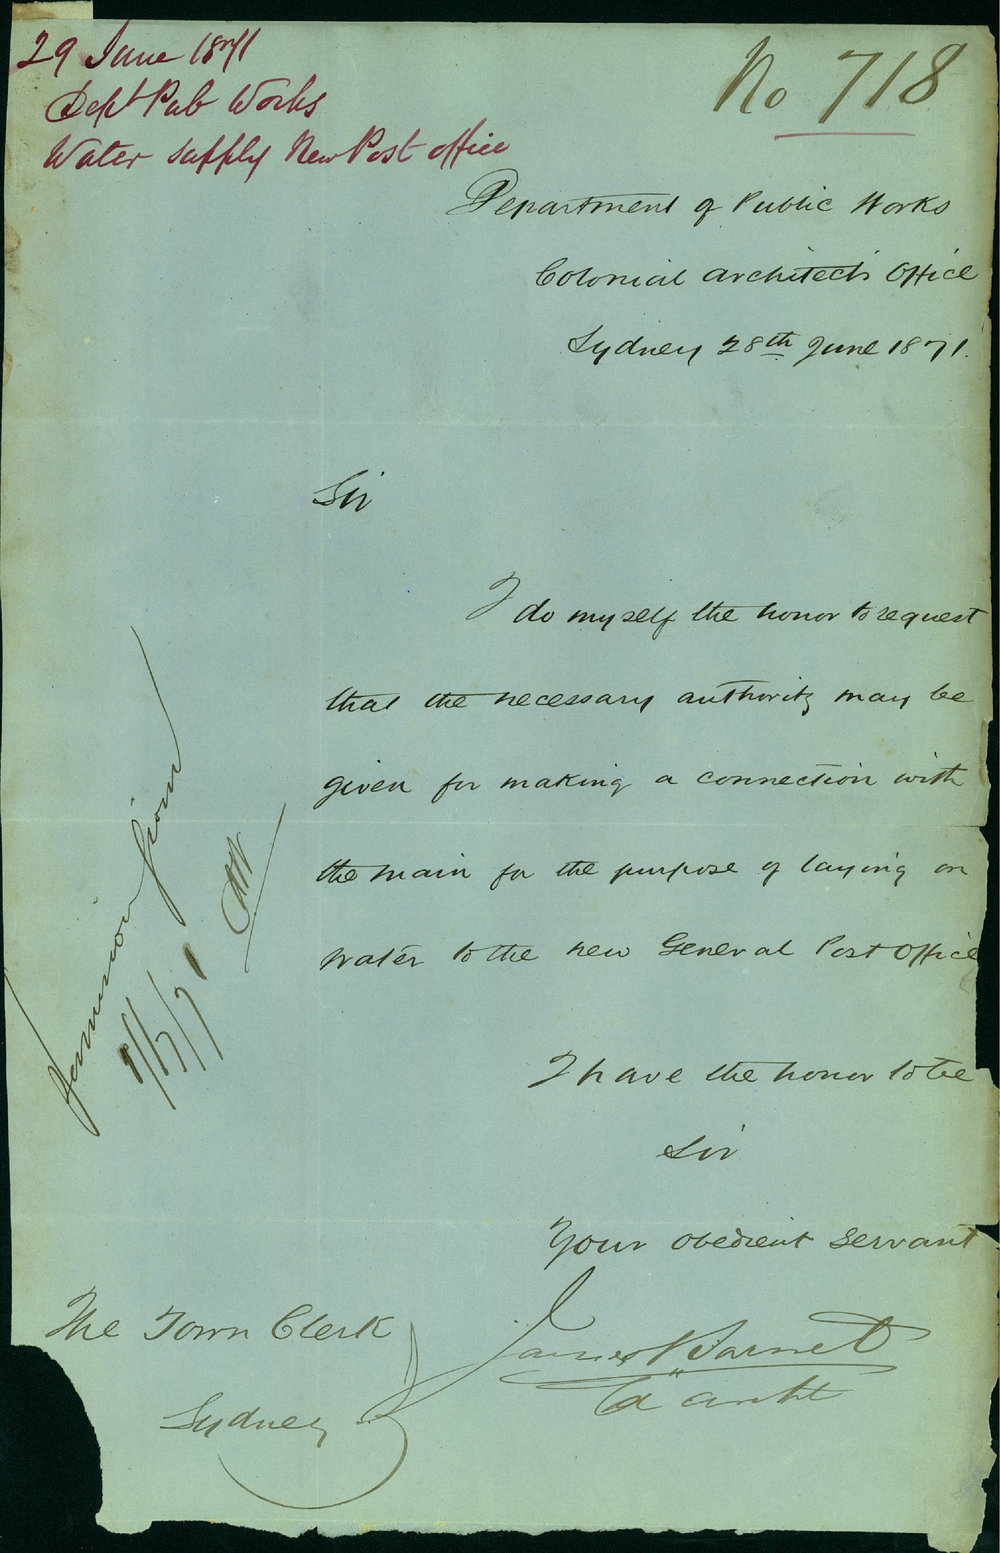 29 June 1871
Dept Pub Works
Water supply New Post office
No 718
Department of Public Works
Colonial Architects Office
Sydney 28th June 1871.
Sir
I do myself the honor to request
that the necessary authority may be
given for making a connection with
the main for the purpose of laying on
water to the new General Post Office
I have the honor to be
Sir
Your obedient servant
James Barnet
Col Archt
The Town Clerk
Sydney